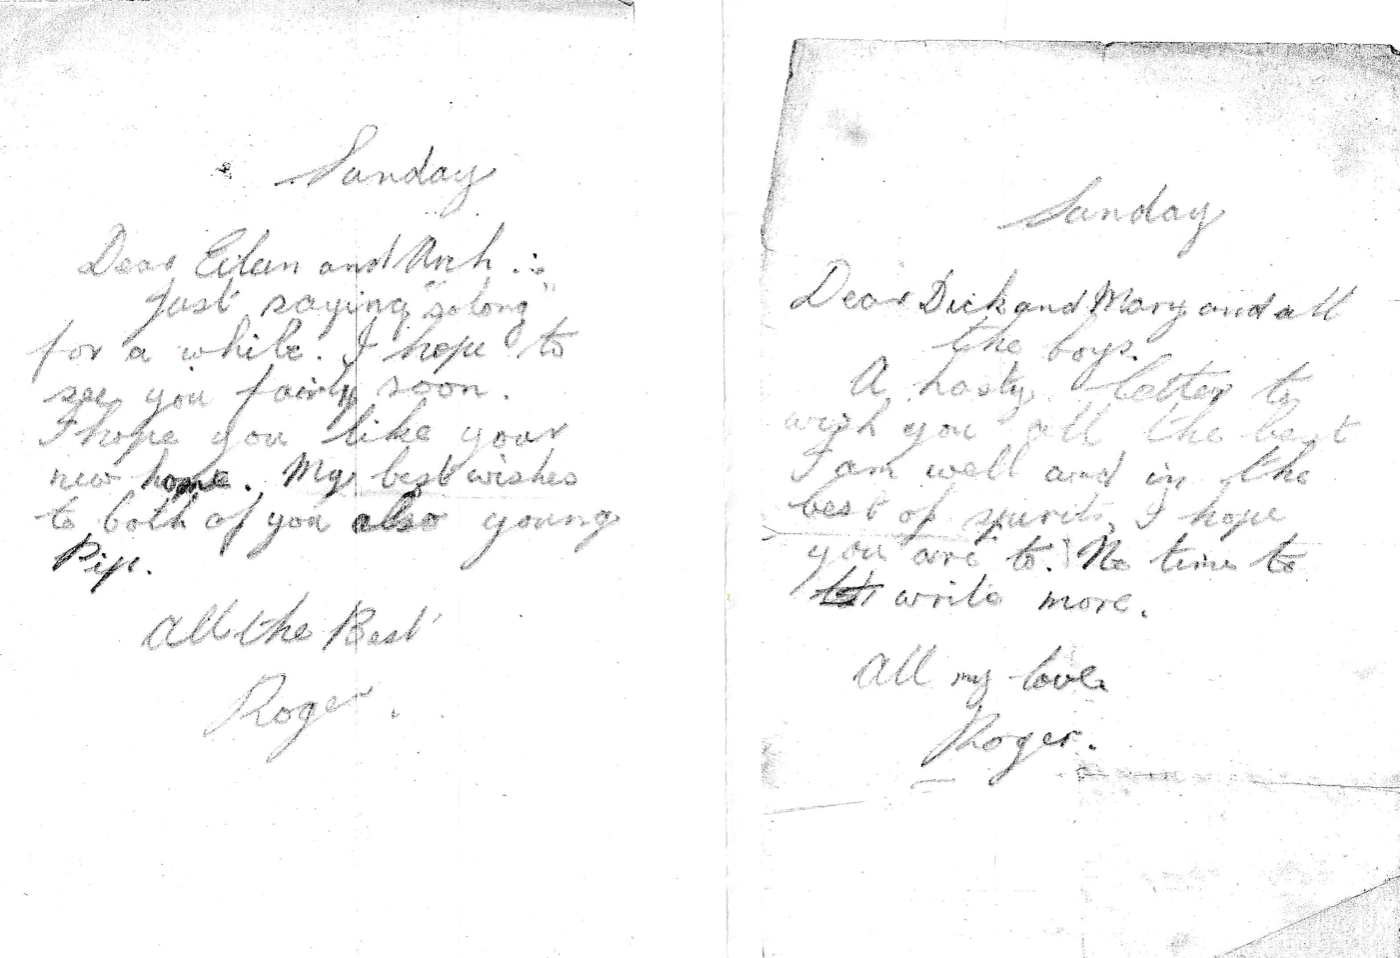 Sunday
Dear Eilan and Arch :
Just saying "so long"
for a while. I hope to
see you fairly soon.
I hope you like your
new home. My best wishes
to both of you also young
Pip.
All the Best
Roger.
Sunday
Dear Dick and Mary and all
the boys.
A hasty letter to
wish you all the best
I am well and in the
best of spirits, I hope
you are to. No time to
write more.
All my love
Roger.